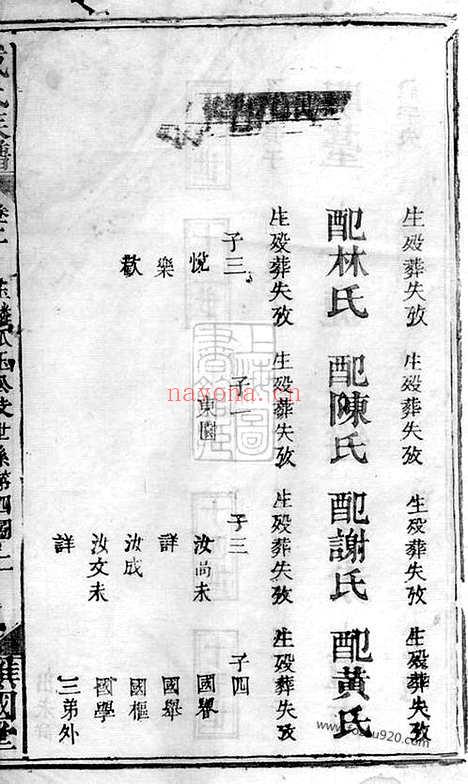 生殁葬失攷 生殁葬失攷 生殁葬失攷 生殁葬失攷
配林氏 配陳氏 配謝氏 配黃氏
生殁葬失攷 生殁葬失攷 生殁葬失攷 生殁葬失攷
子三 子一 子三 子四
悅 東園 汝尚未 國譽
樂 詳 國舉
歡 汝成 國樞
汝文未 國學
詳 三弟外
氏族譜
世系第四圖
國堂
上海圖書館藏
nayona.cn